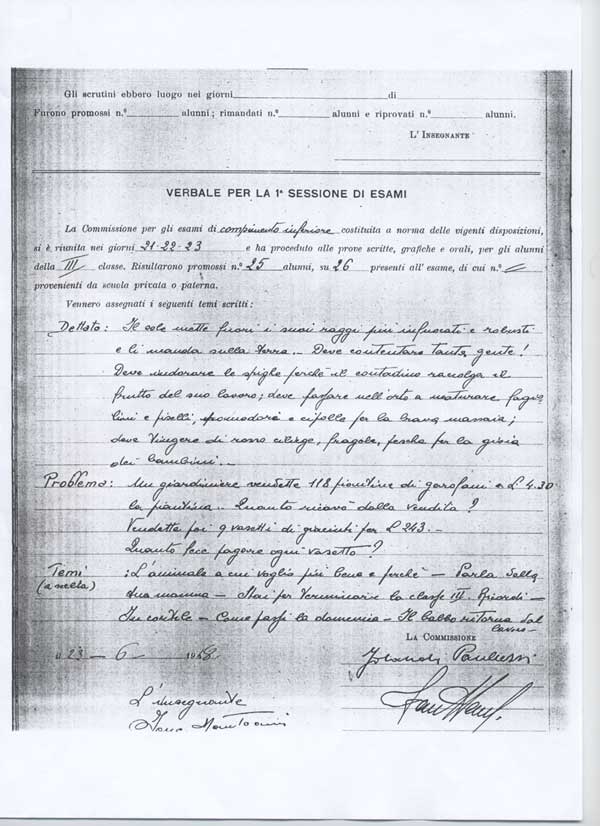 Gli scrutini ebbero luogo nei giorni di
Furono promossi n.º alunni; rimandati n.º alunni e riprovati n.º alunni.
L'INSEGNANTE
VERBALE PER LA 1ª SESSIONE DI ESAMI
La Commissione per gli esami di compimento inferiore costituita a norma delle vigenti disposizioni,
si è riunita nei giorni 21-22-23 e ha proceduto alle prove scritte, grafiche e orali, per gli alunni
della III classe. Risultarono promossi n.º 25 alunni, su 26 presenti all'esame, di cui n.º
provenienti da scuola privata o paterna.
Vennero assegnati i seguenti temi scritti:
Dettato: Il sole mette fuori i suoi raggi più infuocati e robusti
e li manda sulla terra... Deve contentare tanta gente!
Deve indorare le spighe perchè il contadino raccolga il
frutto del suo lavoro; deve far nell'orto a maturare fagio-
lini e piselli, pomodori e cipolle per la brava massaia;
deve tingere di rosso ciliege, fragole, pesche per la gioia
dei bambini.
Problema: Un giardiniere vendette 118 piantine di garofani a £ 4.30
la piantina. Quanto ricavò dalla vendita?
Vendette poi 9 vasetti di giacinti per £ 243.-
Quanto fece pagare ogni vasetto?
Temi : L'animale a cui voglio più bene e perchè - Parla della
(a scelta) tua mamma - Stai per terminare la classe III. Ricordi -
In cortile - Come passi la domenica - Il babbo ritorna dal
lavoro -
LA COMMISSIONE
23 - 6
L'insegnante